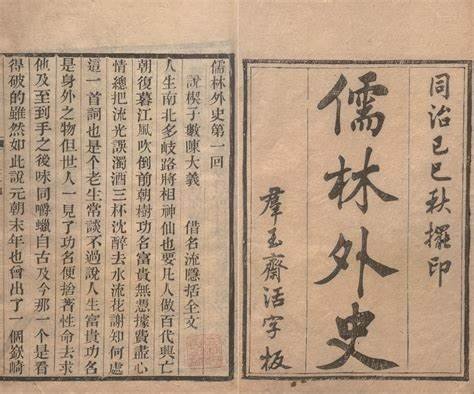 同治己巳秋擺印
儒林外史
羣玉齋活字板
儒林外史第一回
說楔子敷陳大義　借名流隱括全文
人生南北多歧路將相神仙也要凡人做百代興亡
朝復暮江風吹倒前朝樹功名富貴無憑據費盡心
情總把流光誤濁酒三杯沈醉去水流花謝知何處
這一首詞也是個老生常談不過說人生富貴功名
是身外之物但世人一見了功名便捨著性命去求
他及至到手之後味同嚼蠟自古及今那一個是看
得破的雖然如此說元朝末年也曾出了一個嶔崎